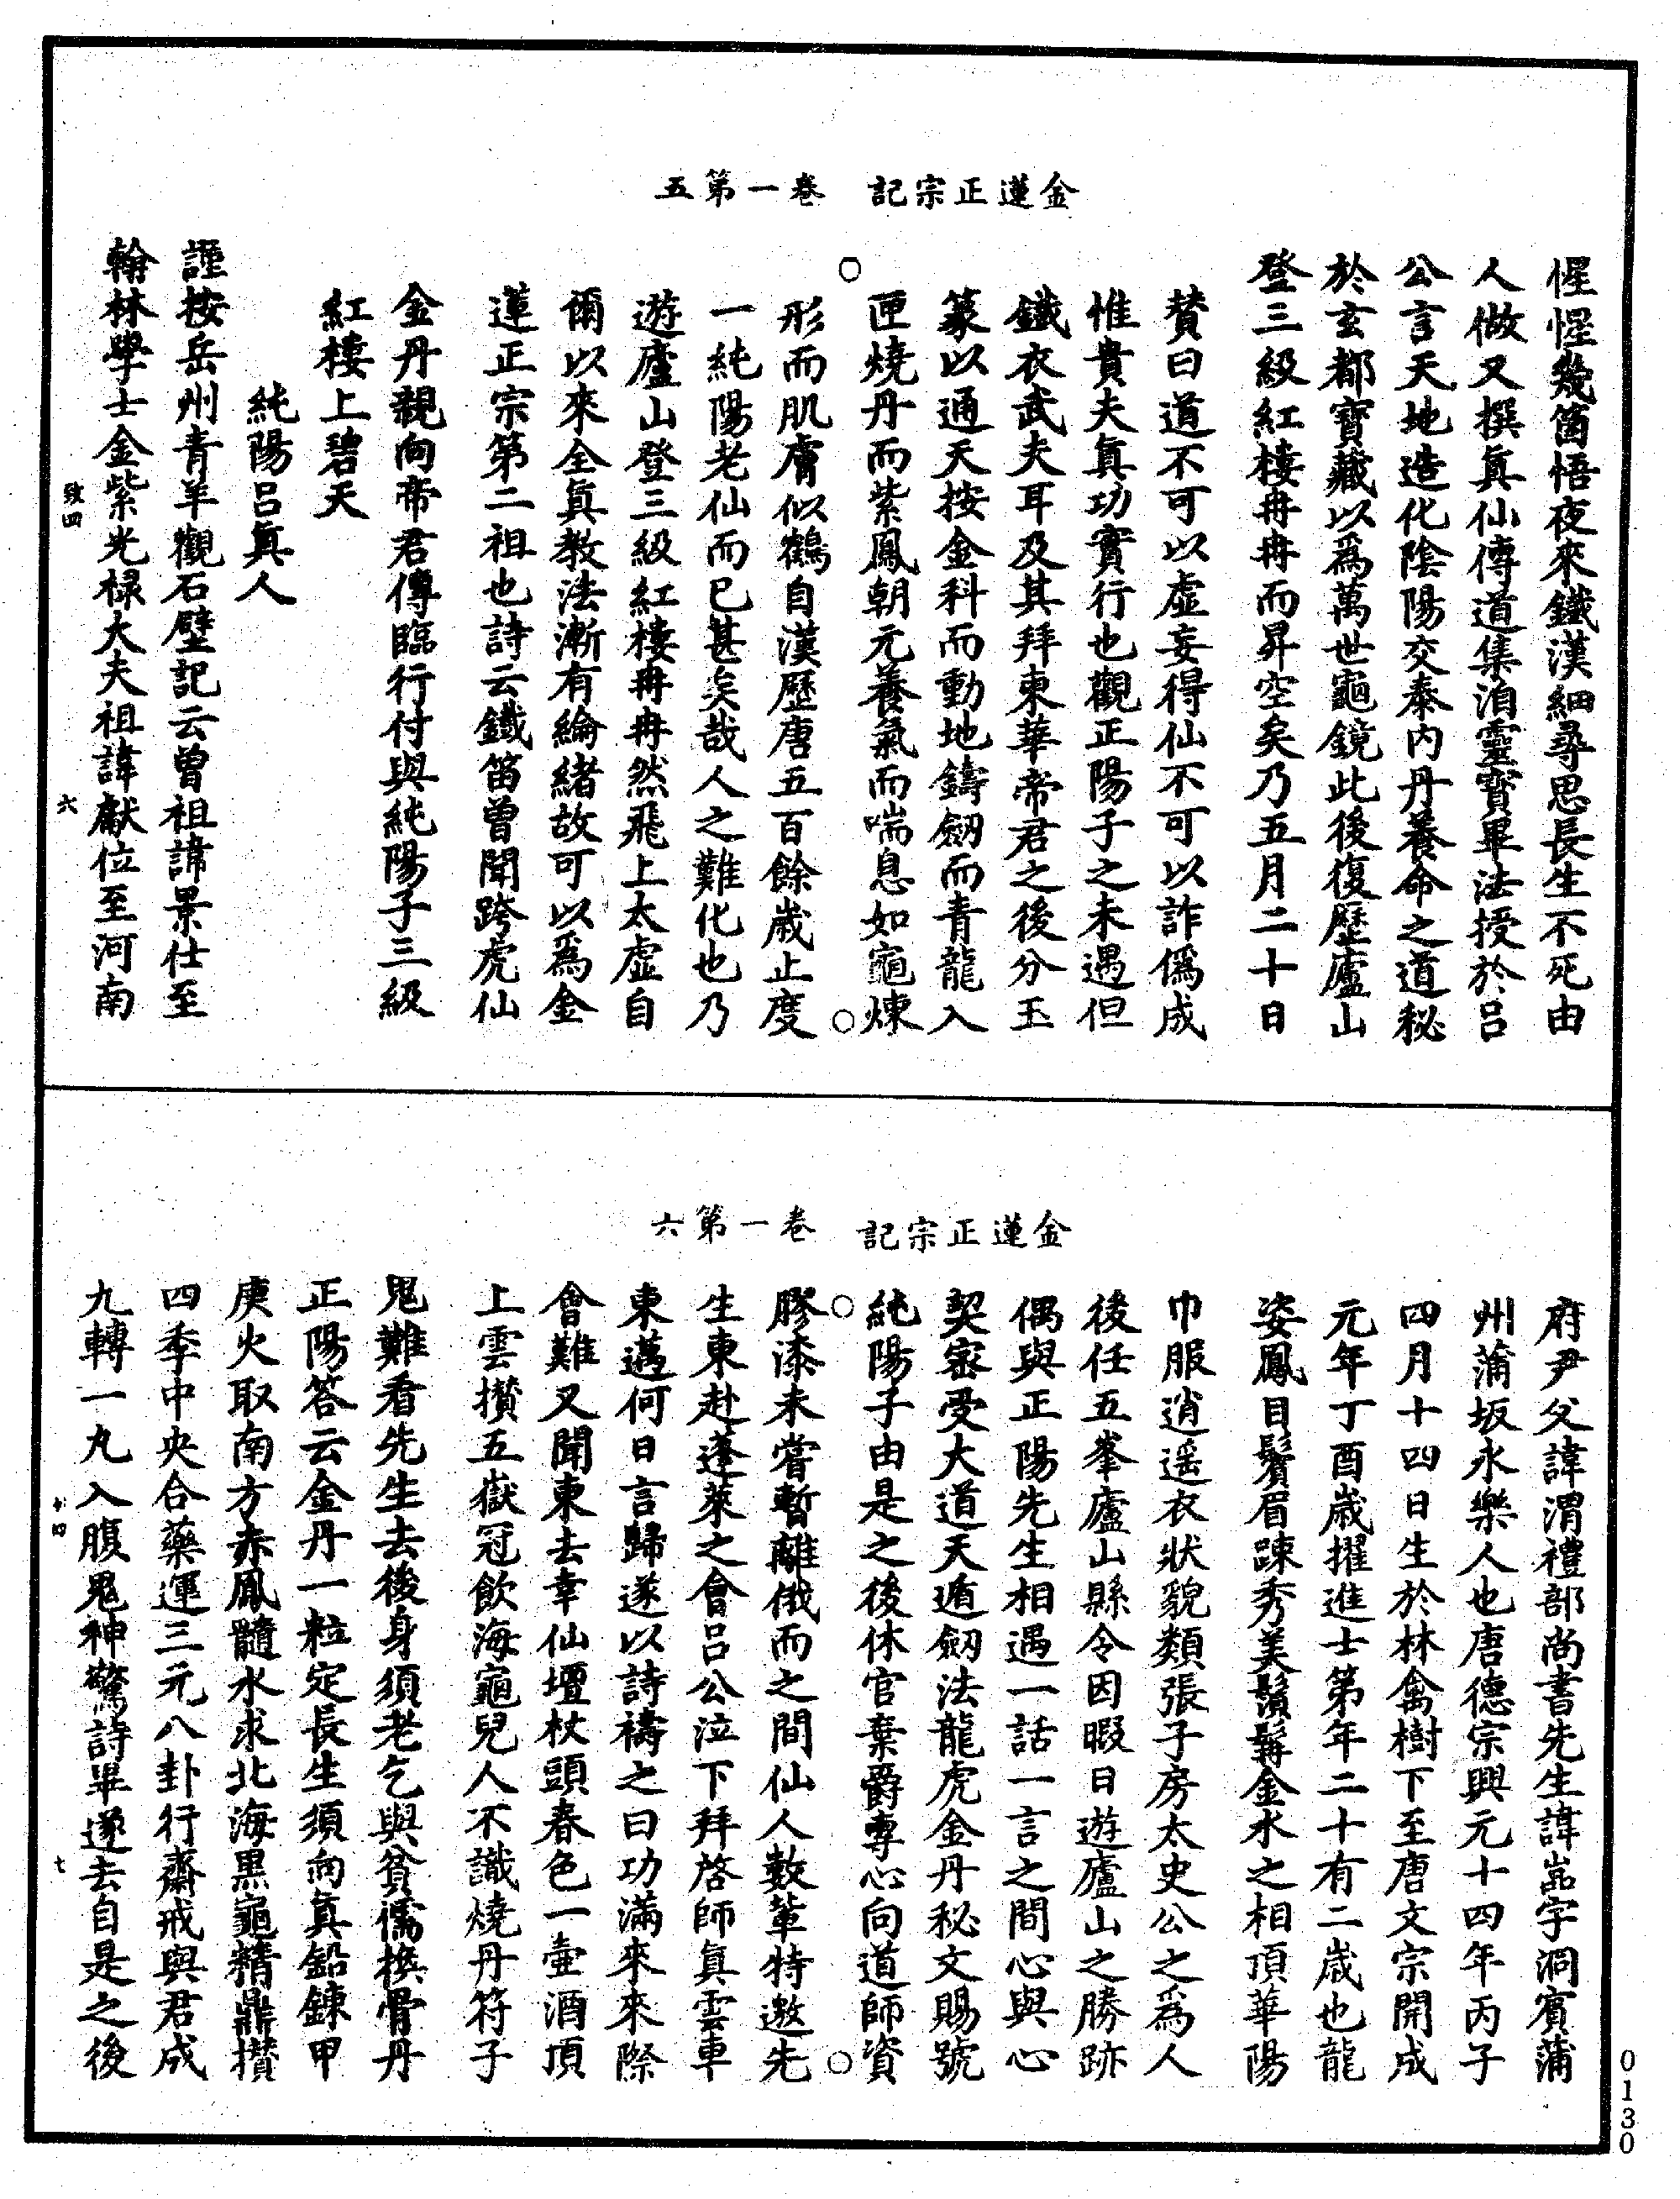 金蓮正宗記　卷一第五
惺惺幾箇悟夜來鐵漢細尋思長生不死由
人做又撰眞仙傳道集洎靈寳畢法授於吕
公言天地造化陰陽交泰内丹養命之道秘
於玄都寳藏以爲萬世龜鏡此後復歷廬山
登三級紅樓冉冉而昇空矣乃五月二十日
賛曰道不可以虛妄得仙不可以詐僞成
惟貴夫真功實行也觀正陽子之未遇但
鐵衣武夫耳及其拜東華帝君之後分玉
篆以通天按金科而動地鑄劒而青龍入
匣燒丹而紫鳳朝元養氣而喘息如龜煉
形而肌膚似鶴自漢歷唐五百餘歲止度
一純陽老仙而已甚矣哉人之難化也乃
遊廬山登三級紅樓冉冉然飛上太虛自
爾以來全眞教法漸有綸緒故可以爲金
蓮正宗第二祖也詩云鐵笛曾聞跨虎仙
金丹親向帝君傳臨行付與純陽子三級
紅樓上碧天
純陽吕眞人
謹按岳州青羊觀石壁記云曾祖諱景仕至
翰林學士金紫光禄大夫祖諱獻位至河南
致四　六
金蓮正宗記　卷一第六
府尹父諱渭禮部尚書先生諱嵓字洞賓蒲
州蒲坂永樂人也唐德宗興元十四年丙子
四月十四日生於林禽樹下至唐文宗開成
元年丁酉歲擢進士第年二十有二歲也龍
姿鳳目鬢眉踈秀美鬚髯金水之相頂華陽
巾服逍遥衣狀貌類張子房太史公之爲人
後任五峯廬山縣令因暇日遊廬山之勝跡
偶與正陽先生相遇一話一言之間心與心
契密受大道天遁劒法龍虎金丹秘文賜號
純陽子由是之後休官棄爵專心向道師資
膠漆未嘗暫離俄而之間仙人數輩特邀先
生東赴蓬萊之會吕公泣下拜啓師真雲車
東邁何日言歸遂以詩禱之曰功滿來來際
會難又聞東去幸仙壇杖頭春色一壺酒頂
上雲攅五嶽冠飲海龜兒人不識燒丹符子
鬼難看先生去後身須老乞與貧儒換骨丹
正陽答云金丹一粒定長生須向真鉛鍊甲
庚火取南方赤鳳髓水求北海黒龜精鼎攅
四季中央合藥運三元八卦行齋戒與君成
九轉一九入腹鬼神驚詩畢遂去自是之後
四　七
0130